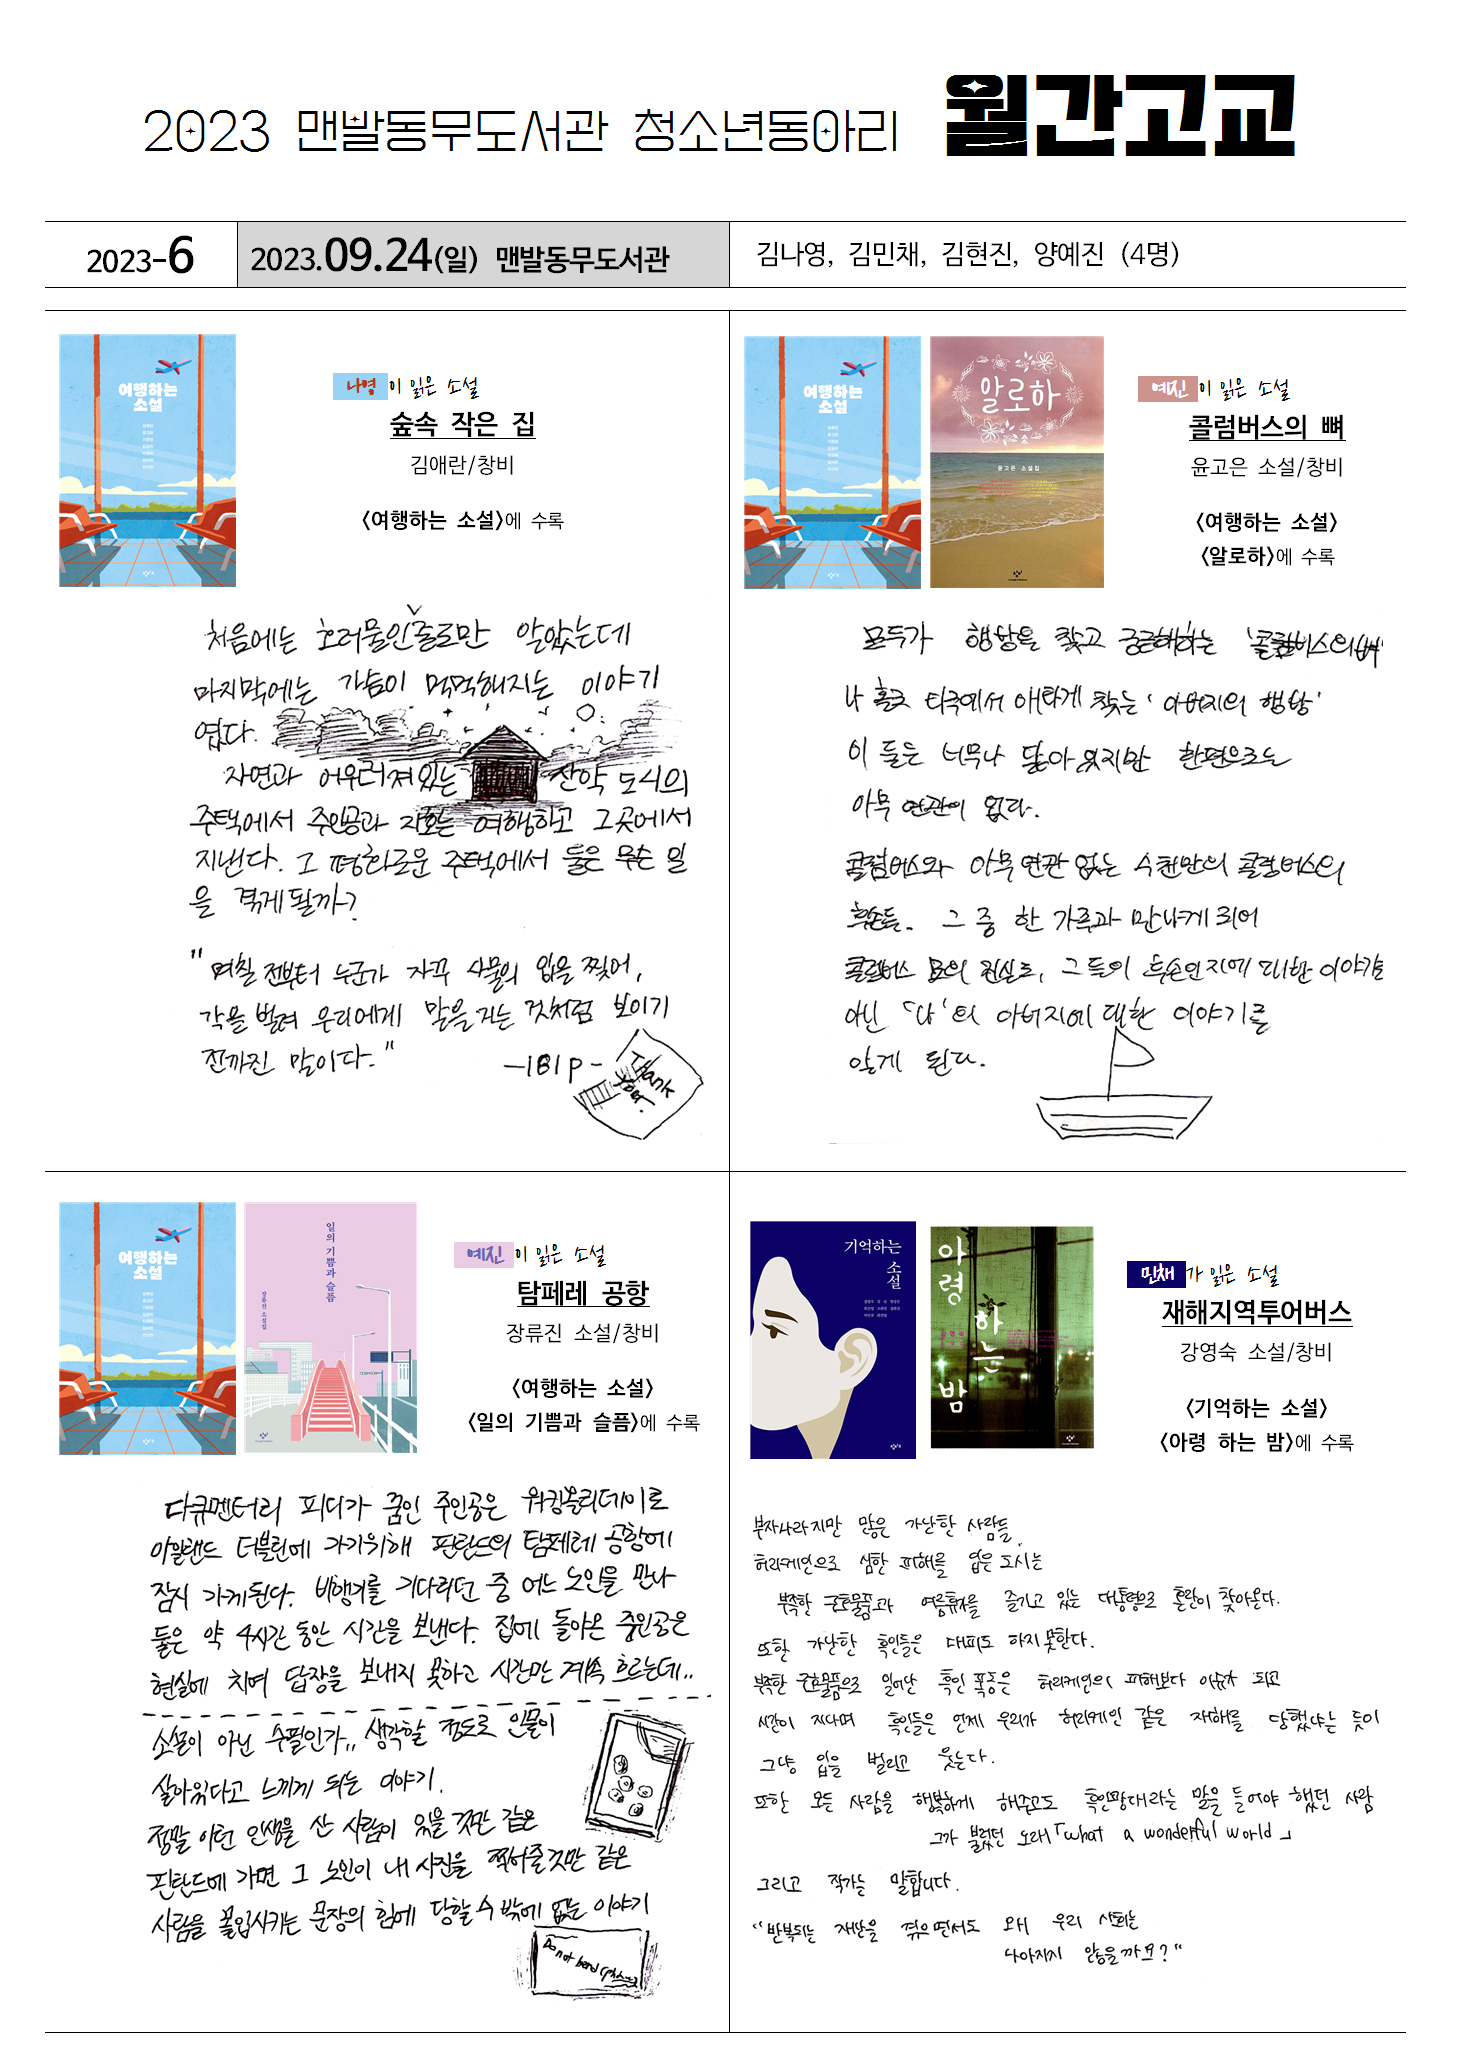 2023 맨발동무도서관 청소년동아리 월간고교
2023-6
2023.09.24(일) 맨발동무도서관
김나영, 김민채, 김현진, 양예진 (4명)
여행하는
소설
나영이 읽은 소설
숲속 작은 집
김애란/창비
<여행하는 소설>에 수록
처음에는 호러물인줄로만 알았는데
마지막에는 가슴이 먹먹해지는 이야기
였다.
자연과 어우러져있는 산악 도시의
주택에서 주인공과 지호는 여행하고 그곳에서
지낸다. 그 평화로운 주택에서 둘은 무슨 일
을 겪게될까?
"며칠 전부터 누군가 자꾸 사물의 입을 찢어,
각을 벌려 우리에게 말을 거는 것처럼 보이기
전까진 말이다."
-181p-
Thank you.
여행하는
소설
알로하
윤고은 소설집
예진이 읽은 소설
콜럼버스의 뼈
윤고은 소설/창비
<여행하는 소설>
<알로하>에 수록
모두가 행방을 찾고 궁금해하는 '콜럼버스의 뼈'
나 홀로 타국에서 애타게 찾는 '아버지의 행방'
이 둘은 너무나 닮아 있지만 한편으로는
아무 연관이 없다.
콜럼버스와 아무 연관 없는 수천만의 콜럼버스의
후손들. 그 중 한 가족과 만나게 되어
콜럼버스 뼈의 진실도, 그들의 후손인지에 대한 이야기도
아닌 '나'의 아버지에 대한 이야기를
알게 된다.
여행하는
소설
일의 기쁨과 슬픔
장류진 소설집
예진이 읽은 소설
탐페레 공항
장류진 소설/창비
<여행하는 소설>
<일의 기쁨과 슬픔>에 수록
다큐멘터리 피디가 꿈인 주인공은 워킹홀리데이로
아일랜드 더블린에 가기위해 핀란드의 탐페레 공항에
잠시 가게된다. 비행기를 기다리던 중 어느 노인을 만나
둘은 약 4시간 동안 시간을 보낸다. 집에 돌아온 주인공은
현실에 치여 답장을 보내지 못하고 시간만 계속 흐르는데..
소설이 아닌 수필인가,, 생각할 정도로 인물이
살아있다고 느끼게 되는 이야기.
정말 이런 인생을 산 사람이 있을 것만 같은
핀란드에 가면 그 노인이 내 사진을 찍어줄것만 같은
사람을 몰입시키는 문장의 힘에 당할 수 밖에 없는 이야기
Do not bend
기억하는
소설
아령 하는 밤
민채가 읽은 소설
재해지역투어버스
강영숙 소설/창비
<기억하는 소설>
<아령 하는 밤>에 수록
부자나라지만 많은 가난한 사람들.
허리케인으로 심한 피해를 입은 도시는
부족한 구호물품과 여름휴가를 즐기고 있는 대통령으로 혼란이 찾아온다.
또한 가난한 흑인들은 대피도 하지 못한다.
부족한 구호물품으로 일어난 흑인 폭동은 허리케인의 피해보다 이슈가 되고
시간이 지나며 흑인들은 언제 우리가 허리케인 같은 재해를 당했냐는 듯이
그냥 입을 벌리고 웃는다.
또한 모든 사람을 행복하게 해주고도 흑인광대라는 말을 들어야 했던 사람
그가 불렀던 노래「What a wonderful world」
그리고 작가는 말합니다.
"반복되는 재난을 겪으면서도 왜 우리 사회는
나아지지 않을까요?"